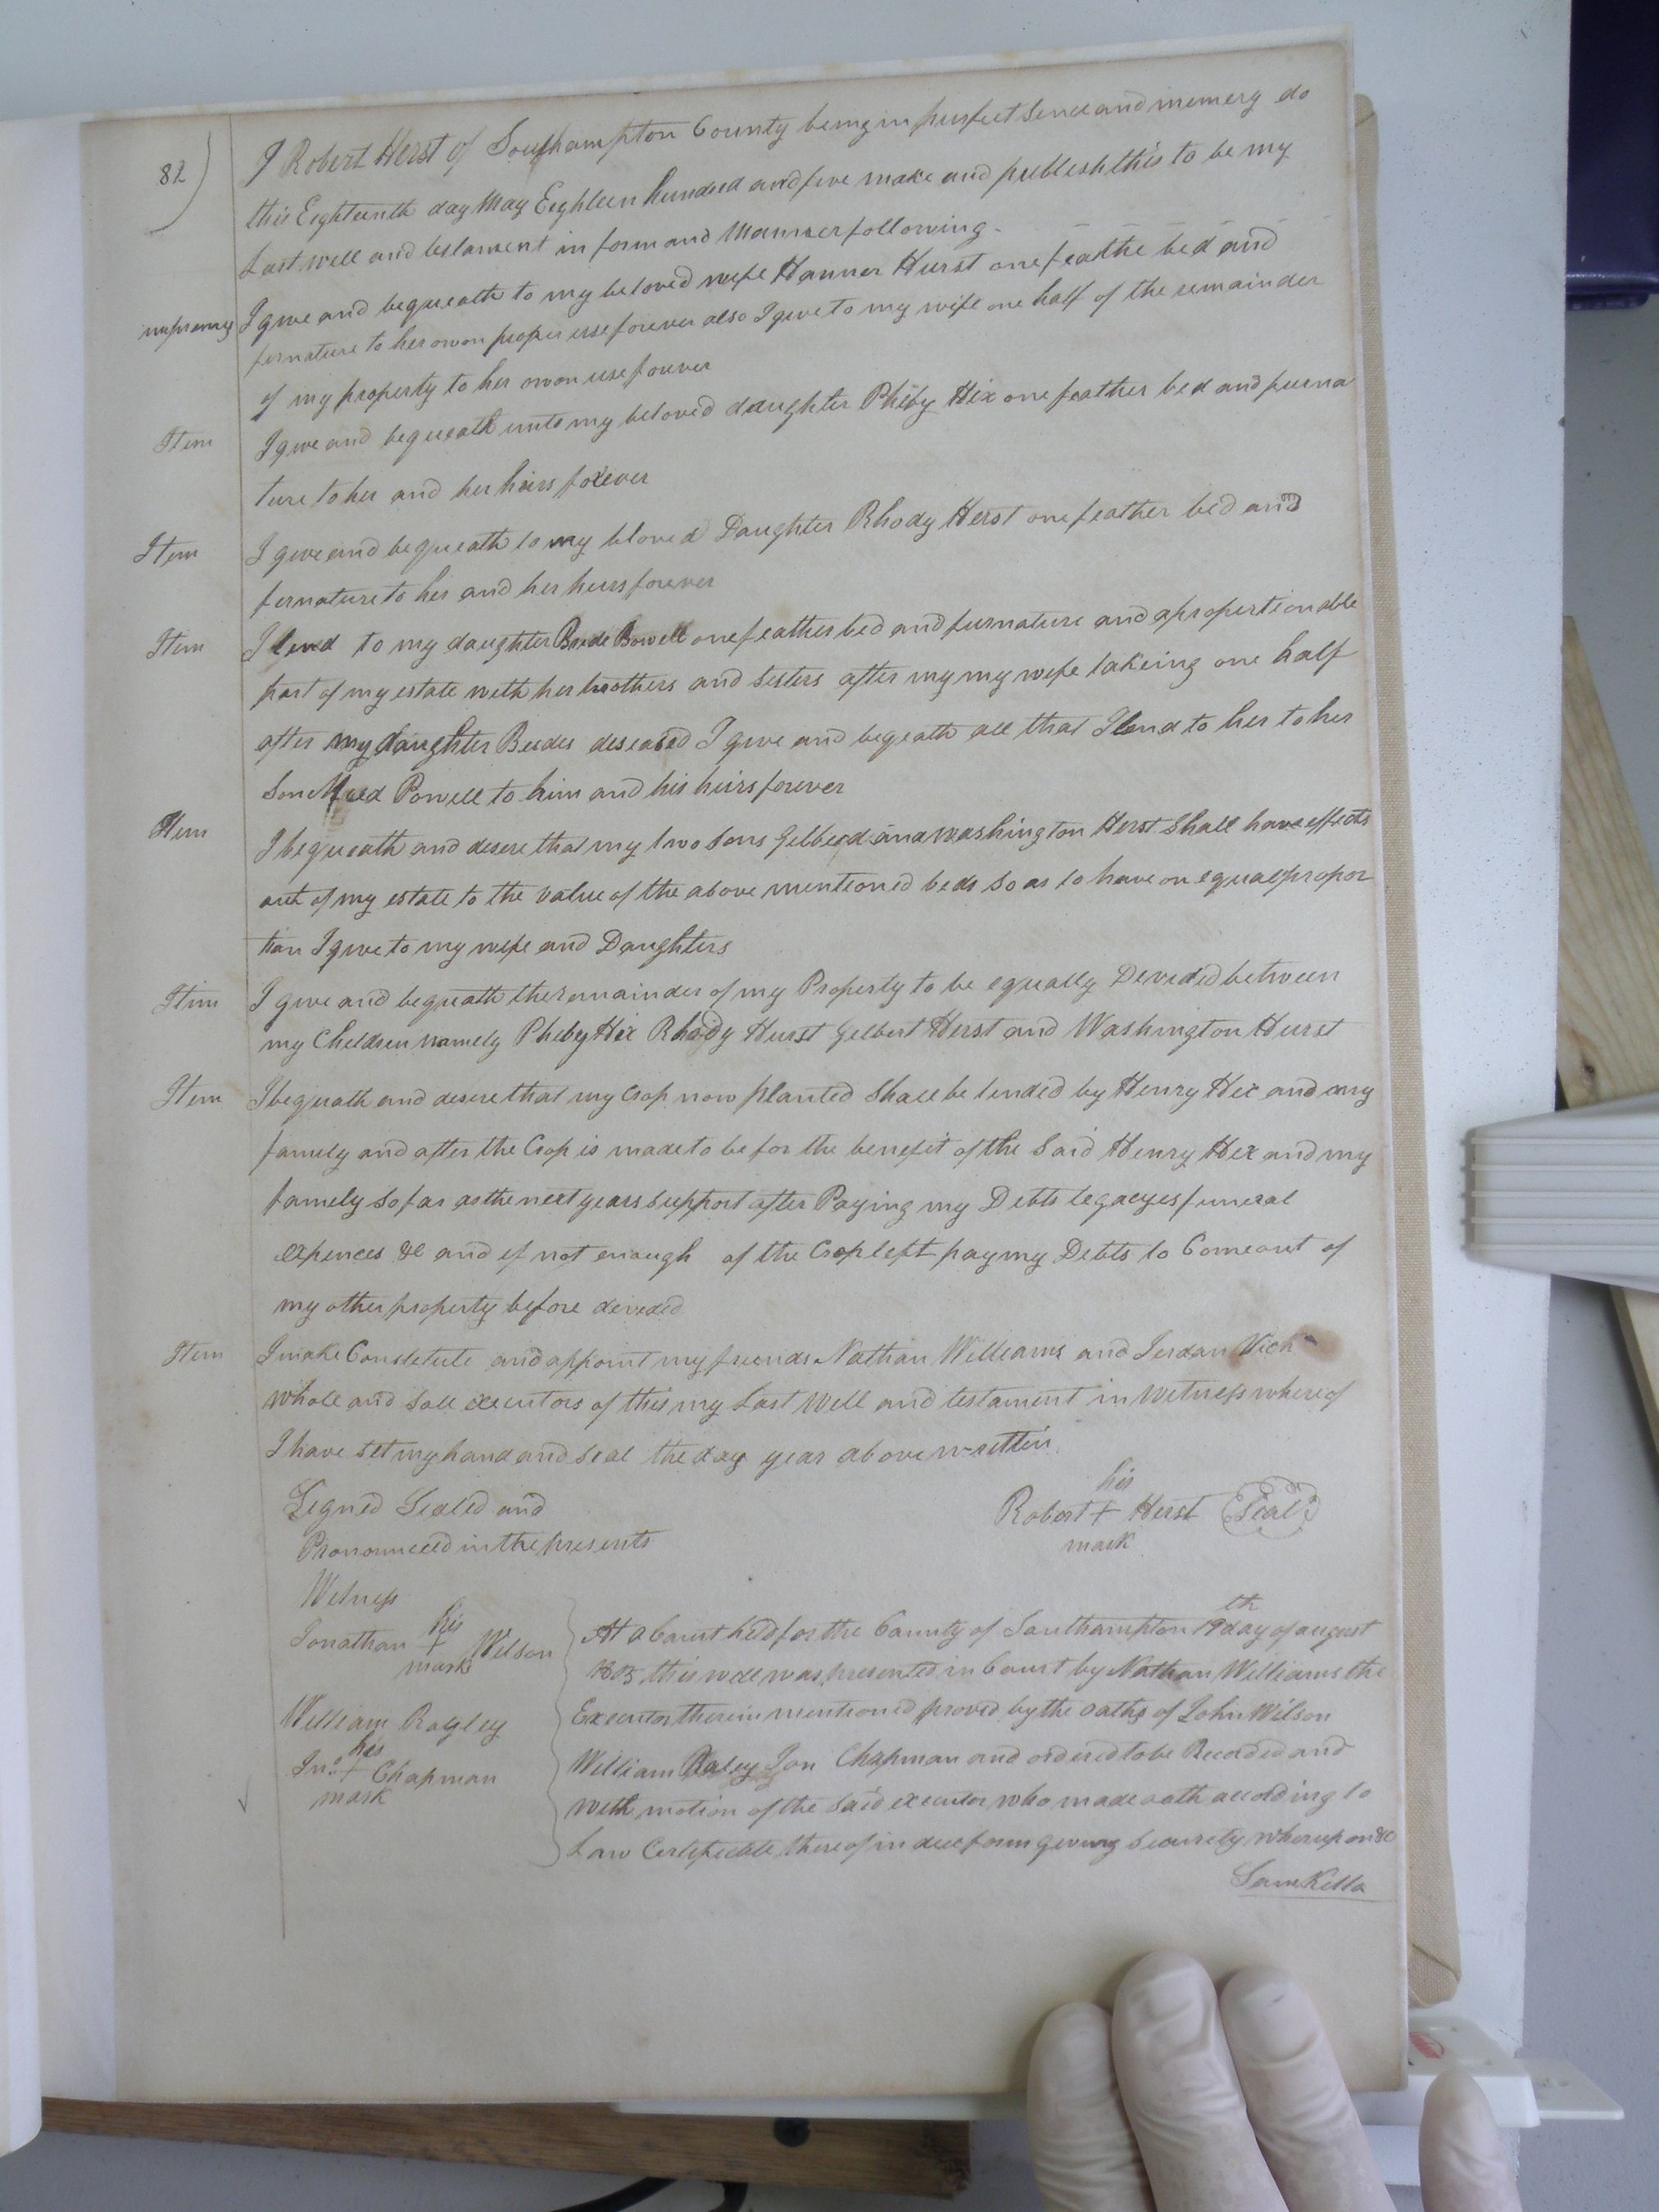 82)
I Robert Herst of Southampton County being in purfect Sence and memery do
this Eighteenth day May Eighteen hundred and five make and publesh this to be my
Last well and testament in form and Manner following -
impremus I give and bequeath to my beloved wife Hanner Hurst one feathe bed and
fernature to her owon proper use forever also I give to my wife one half of the remainder
of my property to her owon use forever
Item I give and bequeath unto my beloved daughter Phiby Hix one feather bed and furna
ture to her and her heirs forever
Item I give and bequeath to my beloved Daughter Rhody Herst one feather bed and
fernature to her and her heirs forever
Item I lend to my daughter Bowell one feather bed and furnature and a propertionable
part of my estate with her brothers and sisters after my my wife takeing one half
after my daughter deseased I give and beqeath all that I lend to her to her
Son Powell to him and his heirs forever
Item I bequeath and desere that my two sons Gelberd and Washington Herst Shall have effects
out of my estate to the value of the above mentioned beds so as to have on equal propor
tion I give to my wife and Daughters
Item I give and bequath the remainder of my Property to be equally Deveded between
my Cheldren namely Pheby Hix Rhody Hurst Gelbert Herst and Washington Hurst
Item I bequath and desere that my Crop now planted Shall be tended by Henry Hix and my
famely and after the Crop is made to be for the benefit of the Said Henry Hix and my
famely so far as the next years support after Paying my Debts legacyes funeral
expences &c and if not enough of the Crop left pay my Debts to Come out of
my other property before deveded
Item I make Constetute and appoint my friends Nathan Williams and Jordan Vick
whole and sole executors of this my Last Well and testament in Witness whereof
I have set my hand and seal the day year above written
Segned Sealed and
Pronounced in the presents
his
Robert + Herst (Seal)
mark
Wetness
his
Jonathan + Wilson
mark
William Ragley
his
Jno. + Chapman
mark
At a Court held for the County of Southampton 19th day of august
1805 this well was presented in Court by Nathan Williams the
Executor therein mentioned proved by the oaths of John Wilson
William Raley Jon Chapman and ordered to be Recorded and
with motion of the said executor who made oath according to
Law Certeficate thereof in due form geving Security wherupon &c
Sam Kello